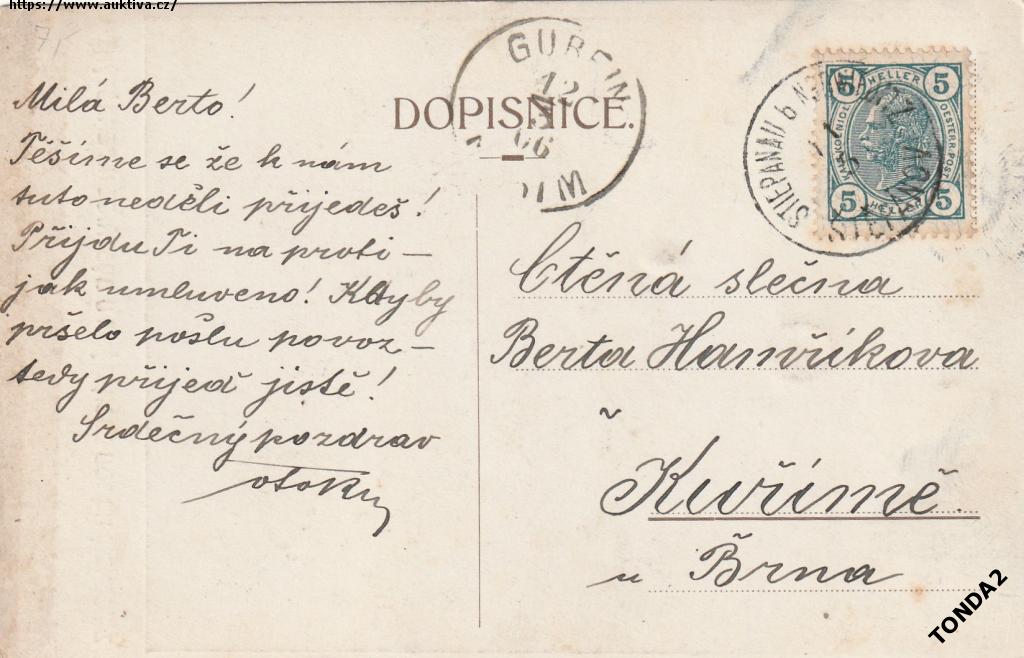 https://www.auktiva.cz/
DOPISNICE.
Milá Berto!
Těšíme se že k nám
tuto neděli přijedeš!
Přijdu Ti na proti —
jak umluveno! Kdyby
pršelo pošlu povoz —
tedy přijeď jistě!
Srdečný pozdrav
GUREIN
12
06
STIEPANAU b
ŠTĚPÁNOV
5 HELLER 5
OESTERR. POST
5 HELLER 5
Ctěná slečna
Berta Hamříkova
v
Kuřímě.
u Brna
TONDA2